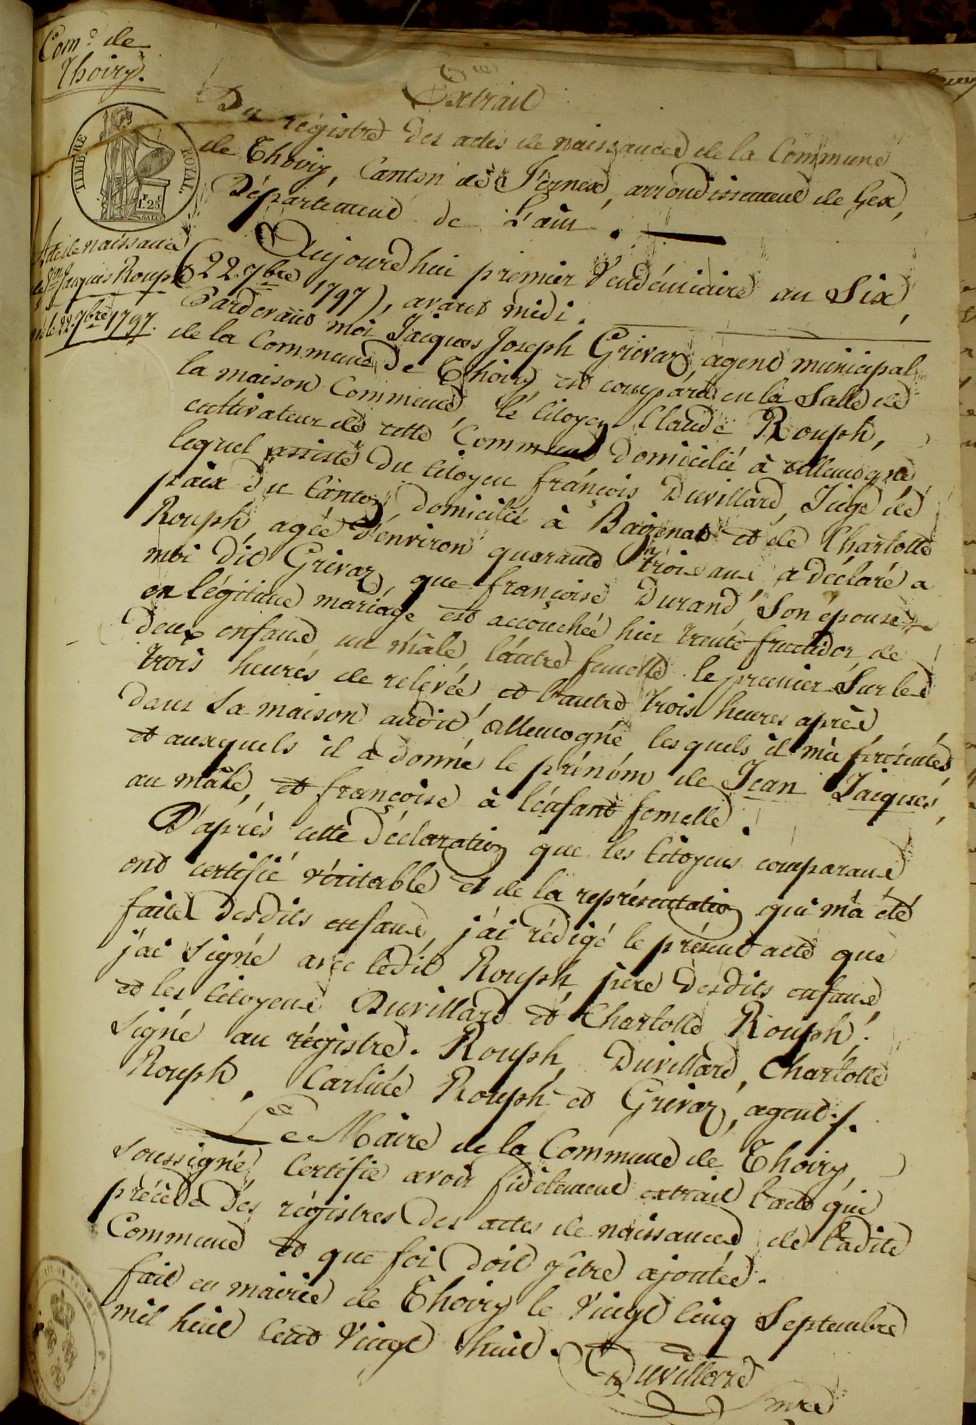 Com.e de
Thoiry.
TIMBRE ROYAL.
Acte de naissance
de Jn Jacques Rouph
né le 22. 7bre 1797.
Extrait
Du régistre des actes de naissance de la Commune
de Thoiry, Canton de Fernex, arrondissement de Gex,
Département de L'ain.
Aujourd'hui premier Vendémiaire an Six,
(22. 7bre 1797), avant midi.
Pardevant moi Jacques Joseph Grivaz agent municipal
de la Commune de Thoiry est comparu en la Salle de
la maison Commune, le citoyen Claude Rouph,
cultivateur de cette Commune domicilié à allemogne
lequel assisté du citoyen françois Duvillard, Juge de
paix du Canton, domicilié à Baizenas et de Charlotte
Rouph, agée d'environ quarante trois ans a déclaré a
moi dit Grivaz, que françoise Durand, Son épouse
en légitime mariage est accouchée hier trente fructidor de
deux enfans un mâle l'autre femelle le premier Sur les
trois heures de relevée, et l'autre trois heures après
dans Sa maison audit allemogne, lesquels il m'a présentés
et auxquels il a donné le prénom de Jean Jacques,
au mâle, et françoise à l'enfant femelle.
D'après cette déclaration que les Citoyens comparans
ont certifié véritable et de la représentation qui m'a été
faite desdits enfans, j'ai rédigé le présent acte que
j'ai Signé avec ledit Rouph père desdits enfans
et les Citoyens Duvillard et Charlotte Rouph.
Signé au régistre. Rouph, Duvillard, Charlotte
Rouph, Carline Rouph et Grivaz, agent ./.
Le Maire de la Commune de Thoiry
Soussigné, Certifie avoir fidèlement extrait l'acte que
précède des régistres des actes de naissance de ladite
Commune et que foi doit y être ajoutée.
fait en mairie de Thoiry le Vingt Cinq Septembre
mil huit Cent Vingt huit.
Duvillard
mre